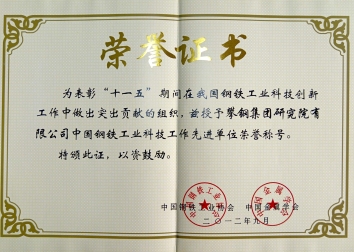 荣誉证书
为表彰“十一五”期间在我国钢铁工业科技创新
工作中做出突出贡献的组织，兹授予攀钢集团研究院有
限公司中国钢铁工业科技工作先进单位荣誉称号。
特颁此证，以资鼓励。
中国钢铁工业协会 中国金属学会
二〇一二年九月